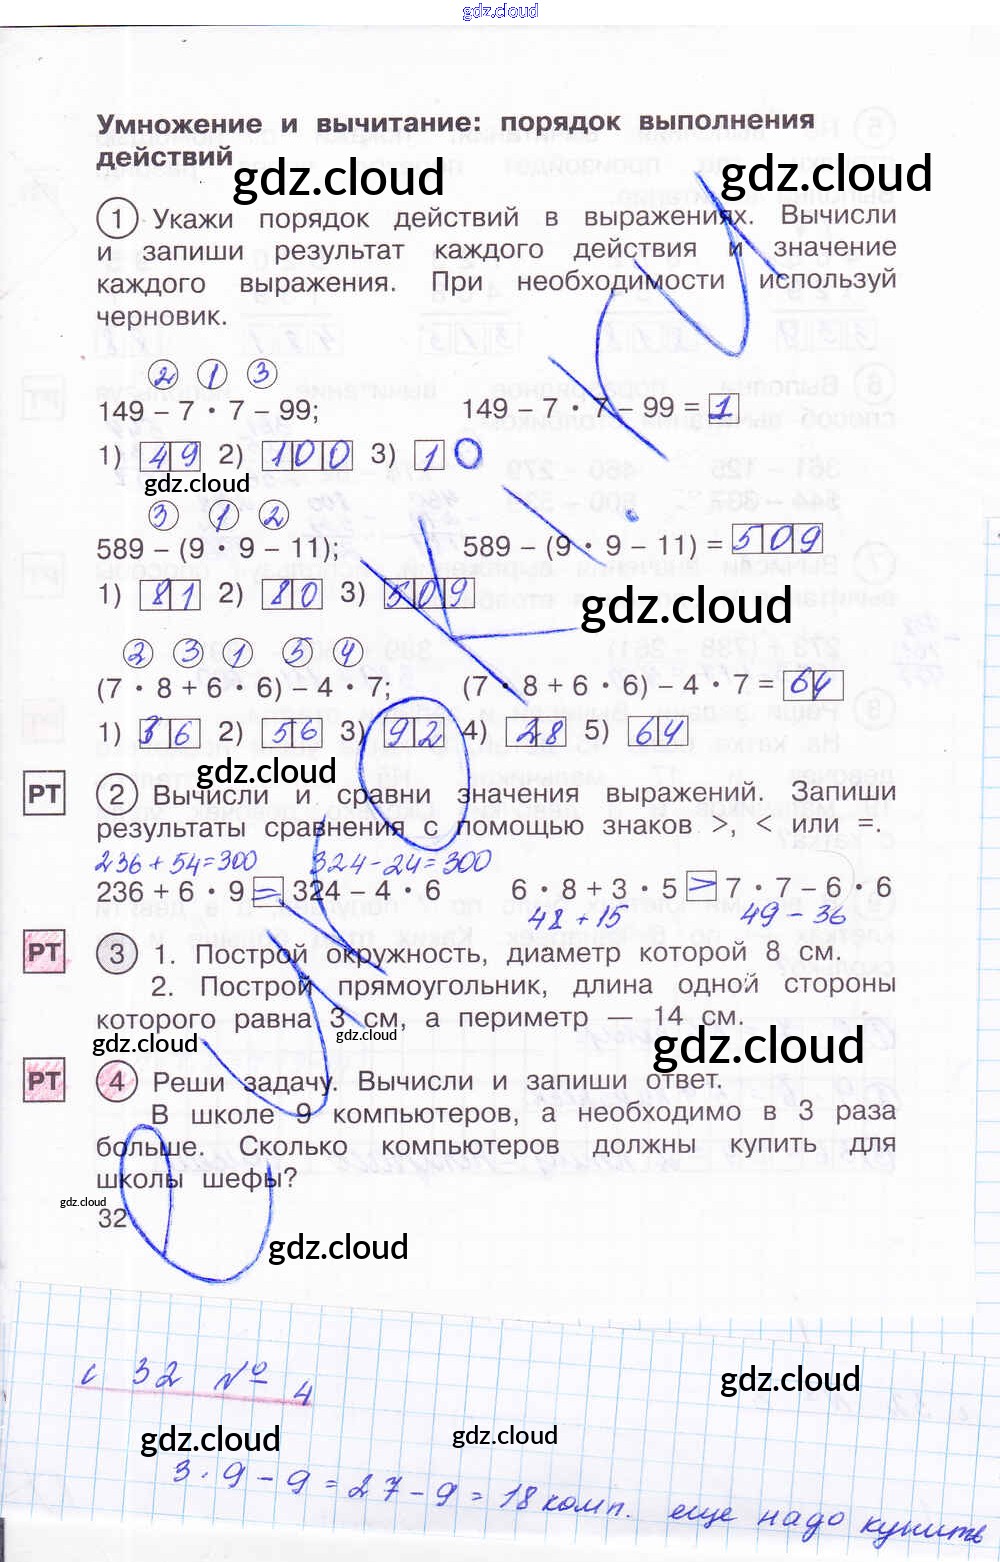 gdz.cloud
Умножение и вычитание: порядок выполнения
действий
gdz.cloud
gdz.cloud
1 Укажи порядок действий в выражениях. Вычисли
и запиши результат каждого действия и значение
каждого выражения. При необходимости используй
черновик.
2 1 3
149 – 7 · 7 – 99; 149 – 7 · 7 – 99 = 1
1) 49 2) 100 3) 1
gdz.cloud
3 1 2
589 – (9 · 9 – 11); 589 – (9 · 9 – 11) = 509
1) 81 2) 80 3) 509
gdz.cloud
2 3 1 5 4
(7 · 8 + 6 · 6) – 4 · 7; (7 · 8 + 6 · 6) – 4 · 7 = 64
1) 36 2) 56 3) 92 4) 28 5) 64
gdz.cloud
РТ 2 Вычисли и сравни значения выражений. Запиши
результаты сравнения с помощью знаков >, < или =.
236 + 54 = 300 324 - 24 = 300
236 + 6 · 9 = 324 – 4 · 6 6 · 8 + 3 · 5 > 7 · 7 – 6 · 6
48 + 15 49 – 36
РТ 3 1. Построй окружность, диаметр которой 8 см.
2. Построй прямоугольник, длина одной стороны
которого равна 3 см, а периметр — 14 см.
gdz.cloud
gdz.cloud
gdz.cloud
РТ 4 Реши задачу. Вычисли и запиши ответ.
В школе 9 компьютеров, а необходимо в 3 раза
больше. Сколько компьютеров должны купить для
школы шефы?
gdz.cloud
32
gdz.cloud
с 32 № 4
gdz.cloud
gdz.cloud
gdz.cloud
3 · 9 – 9 = 27 – 9 = 18 комп. еще надо купить